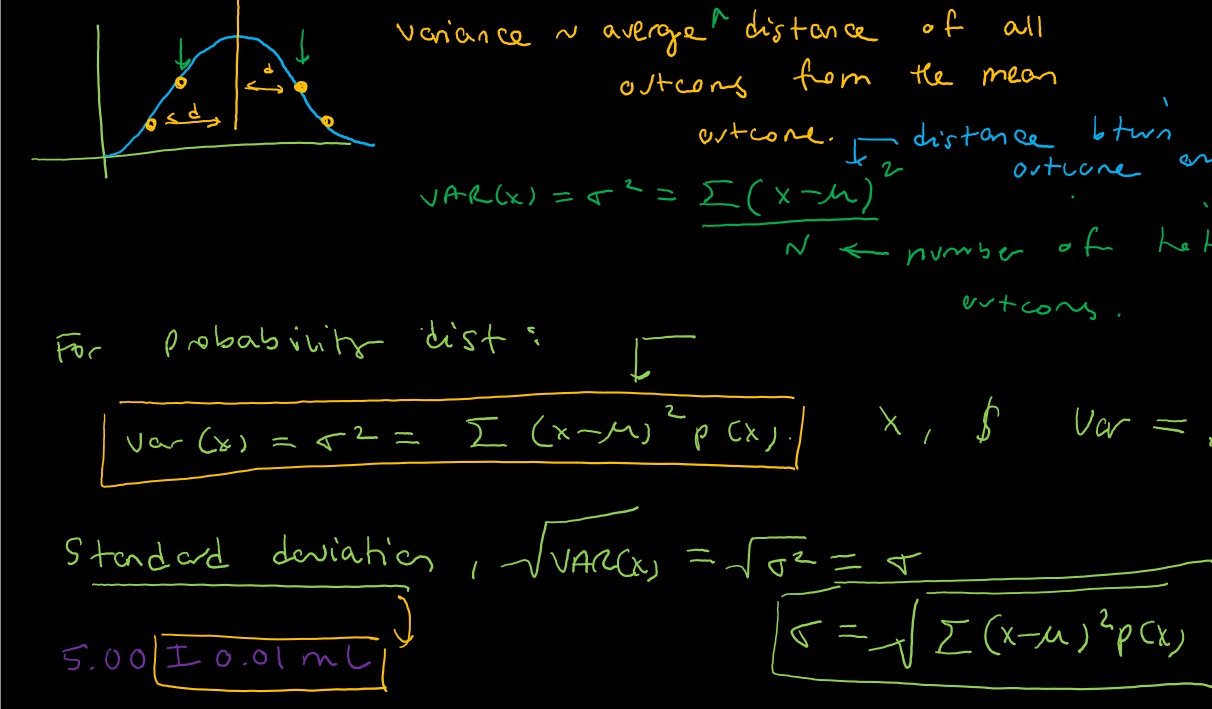 variance ~ average ^ distance of all
outcoms from the mean
outcome.
d
d
distance btwn
outcome
VAR(x) = σ² = Σ(x-μ)²
N ← number of
outcoms.
For probability dist:
var(x) = σ² = Σ (x-μ)² p(x).
x, $ Var =
Standard deviation, √VAR(x) = √σ² = σ
σ = √Σ(x-μ)²p(x)
5.00 ± 0.01 mL